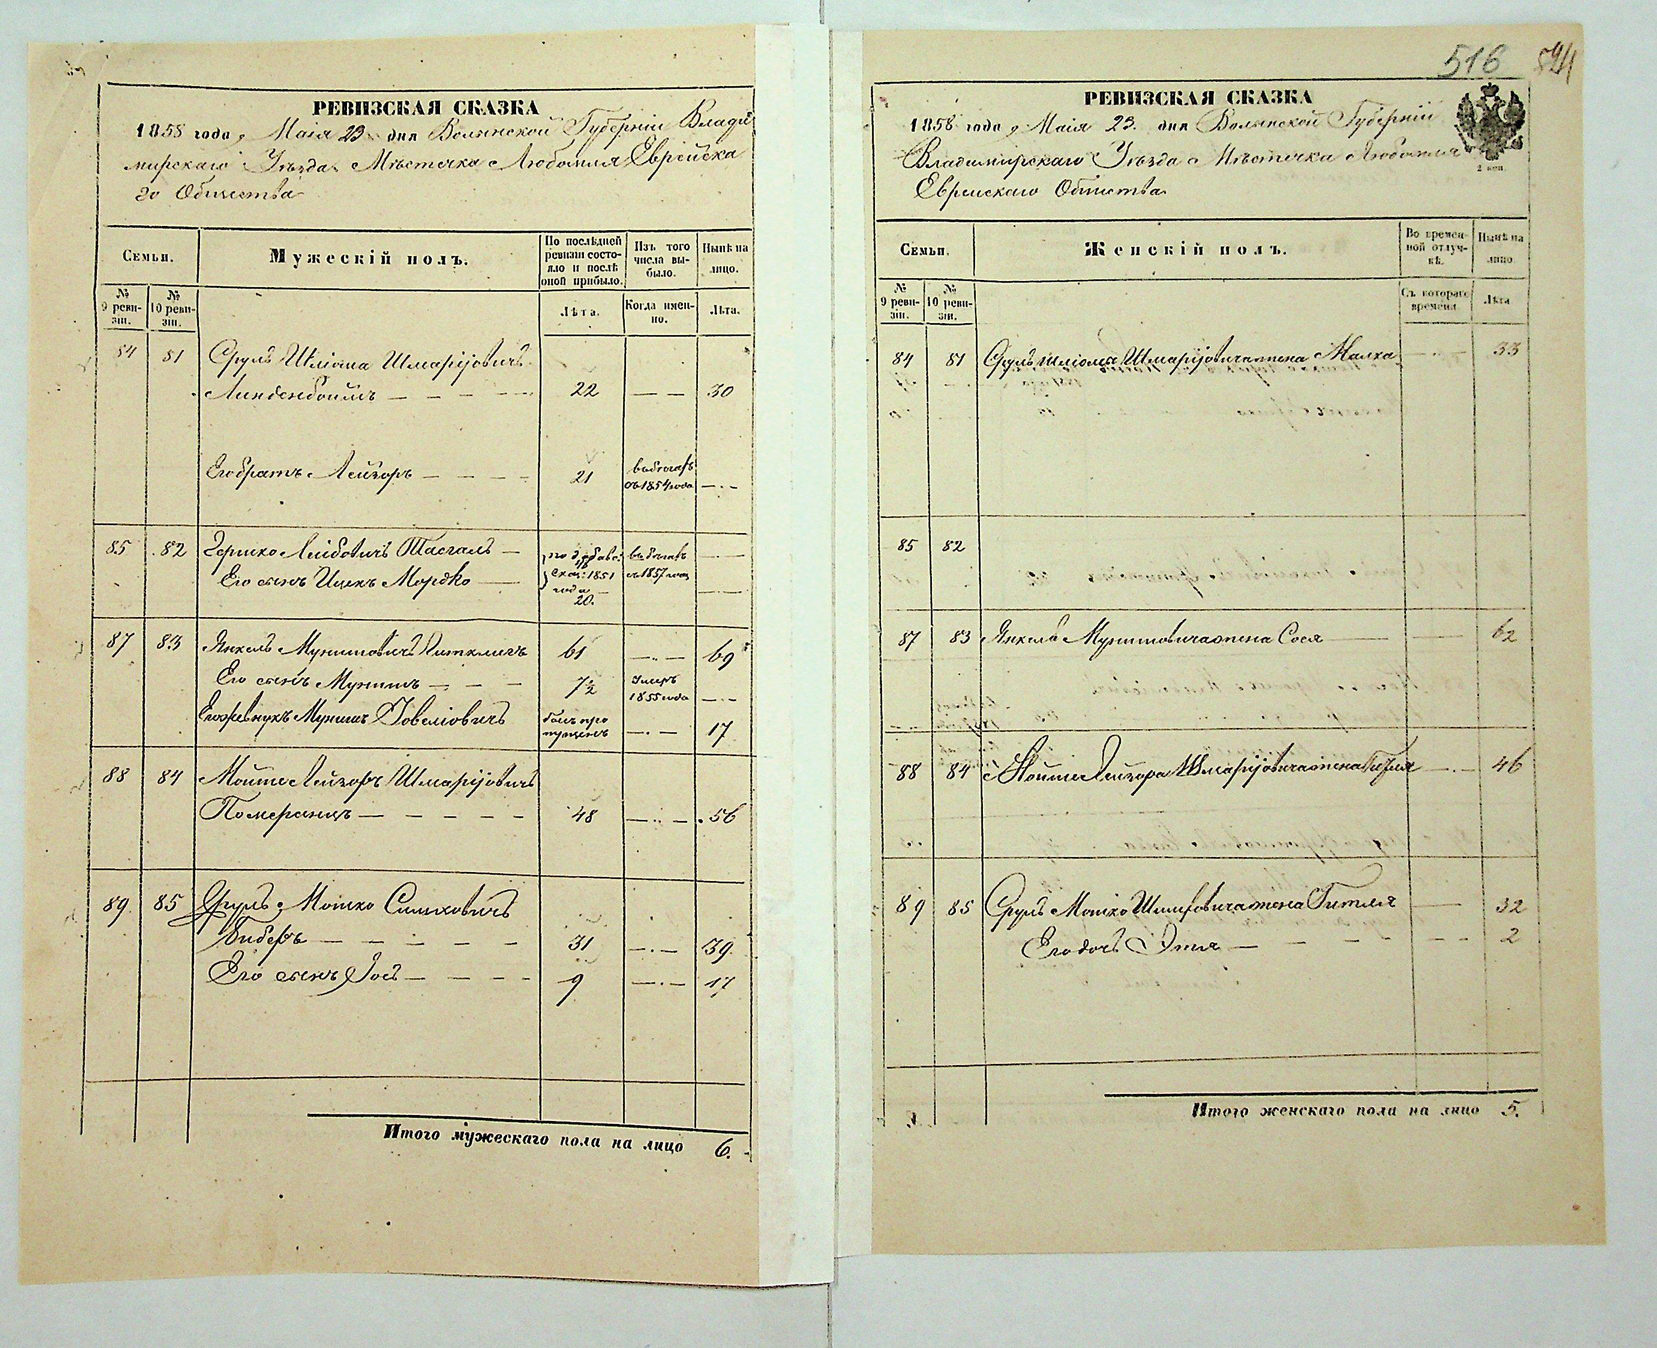 РЕВИЗСКАЯ СКАЗКА
1858 года, Маія 23 дня Волынской Губерніи Влади
мирскаго Уѣзда Мѣстечка Любомля Еврейска
го Общества
Семьи.
Мужескій полъ.
По послѣдней ревизіи состояло и послѣ оной прибыло.
Изъ того числа выбыло.
Нынѣ на лицо.
№ 9 ревизіи.
№ 10 ревизіи.
Лѣта.
Когда именно.
Лѣта.
84 81 Сруль Шліома Шмарійовичъ
Линденбоимъ 22 30
Его братъ Лейзоръ 21 съ 1854 года
85 82 Гершко Лейбовичъ
Его сынъ Ицекъ Мордко съ 1857 года
1851 года 20.
87 83 Янкель Мунишовичъ 61 69
Его сынъ Мунишъ 7½ Умеръ 1855 года
Его внукъ Мунишъ Іовеліовичъ былъ пропущенъ 17
88 84 Мошко Лейзоръ Шмарійовичъ
Померанцъ 48 56
89 85 Сруль Мошко
Биберъ 31 39
Его сынъ Іосъ 9 17
Итого мужескаго пола на лицо 6.
516 524
РЕВИЗСКАЯ СКАЗКА
1858 года, Маія 23. дня Волынской Губерніи
Владимирскаго Уѣзда Мѣстечка Любомля
Еврейскаго Общества
2 коп.
Семьи.
Женскій полъ.
Во временной отлучкѣ.
Нынѣ на лицо.
№ 9 ревизіи.
№ 10 ревизіи.
Съ котораго времени.
Лѣта
84 81 Сруль Шліома Шмарійовича жена Малка 33
85 82
87 83 Янкеля Мунишовича жена Сося 62
88 84 Лейзора Шмарійовича жена 46
89 85 Сруль Мошко жена Гитля 32
Его дочь 2
Итого женскаго пола на лицо 5.